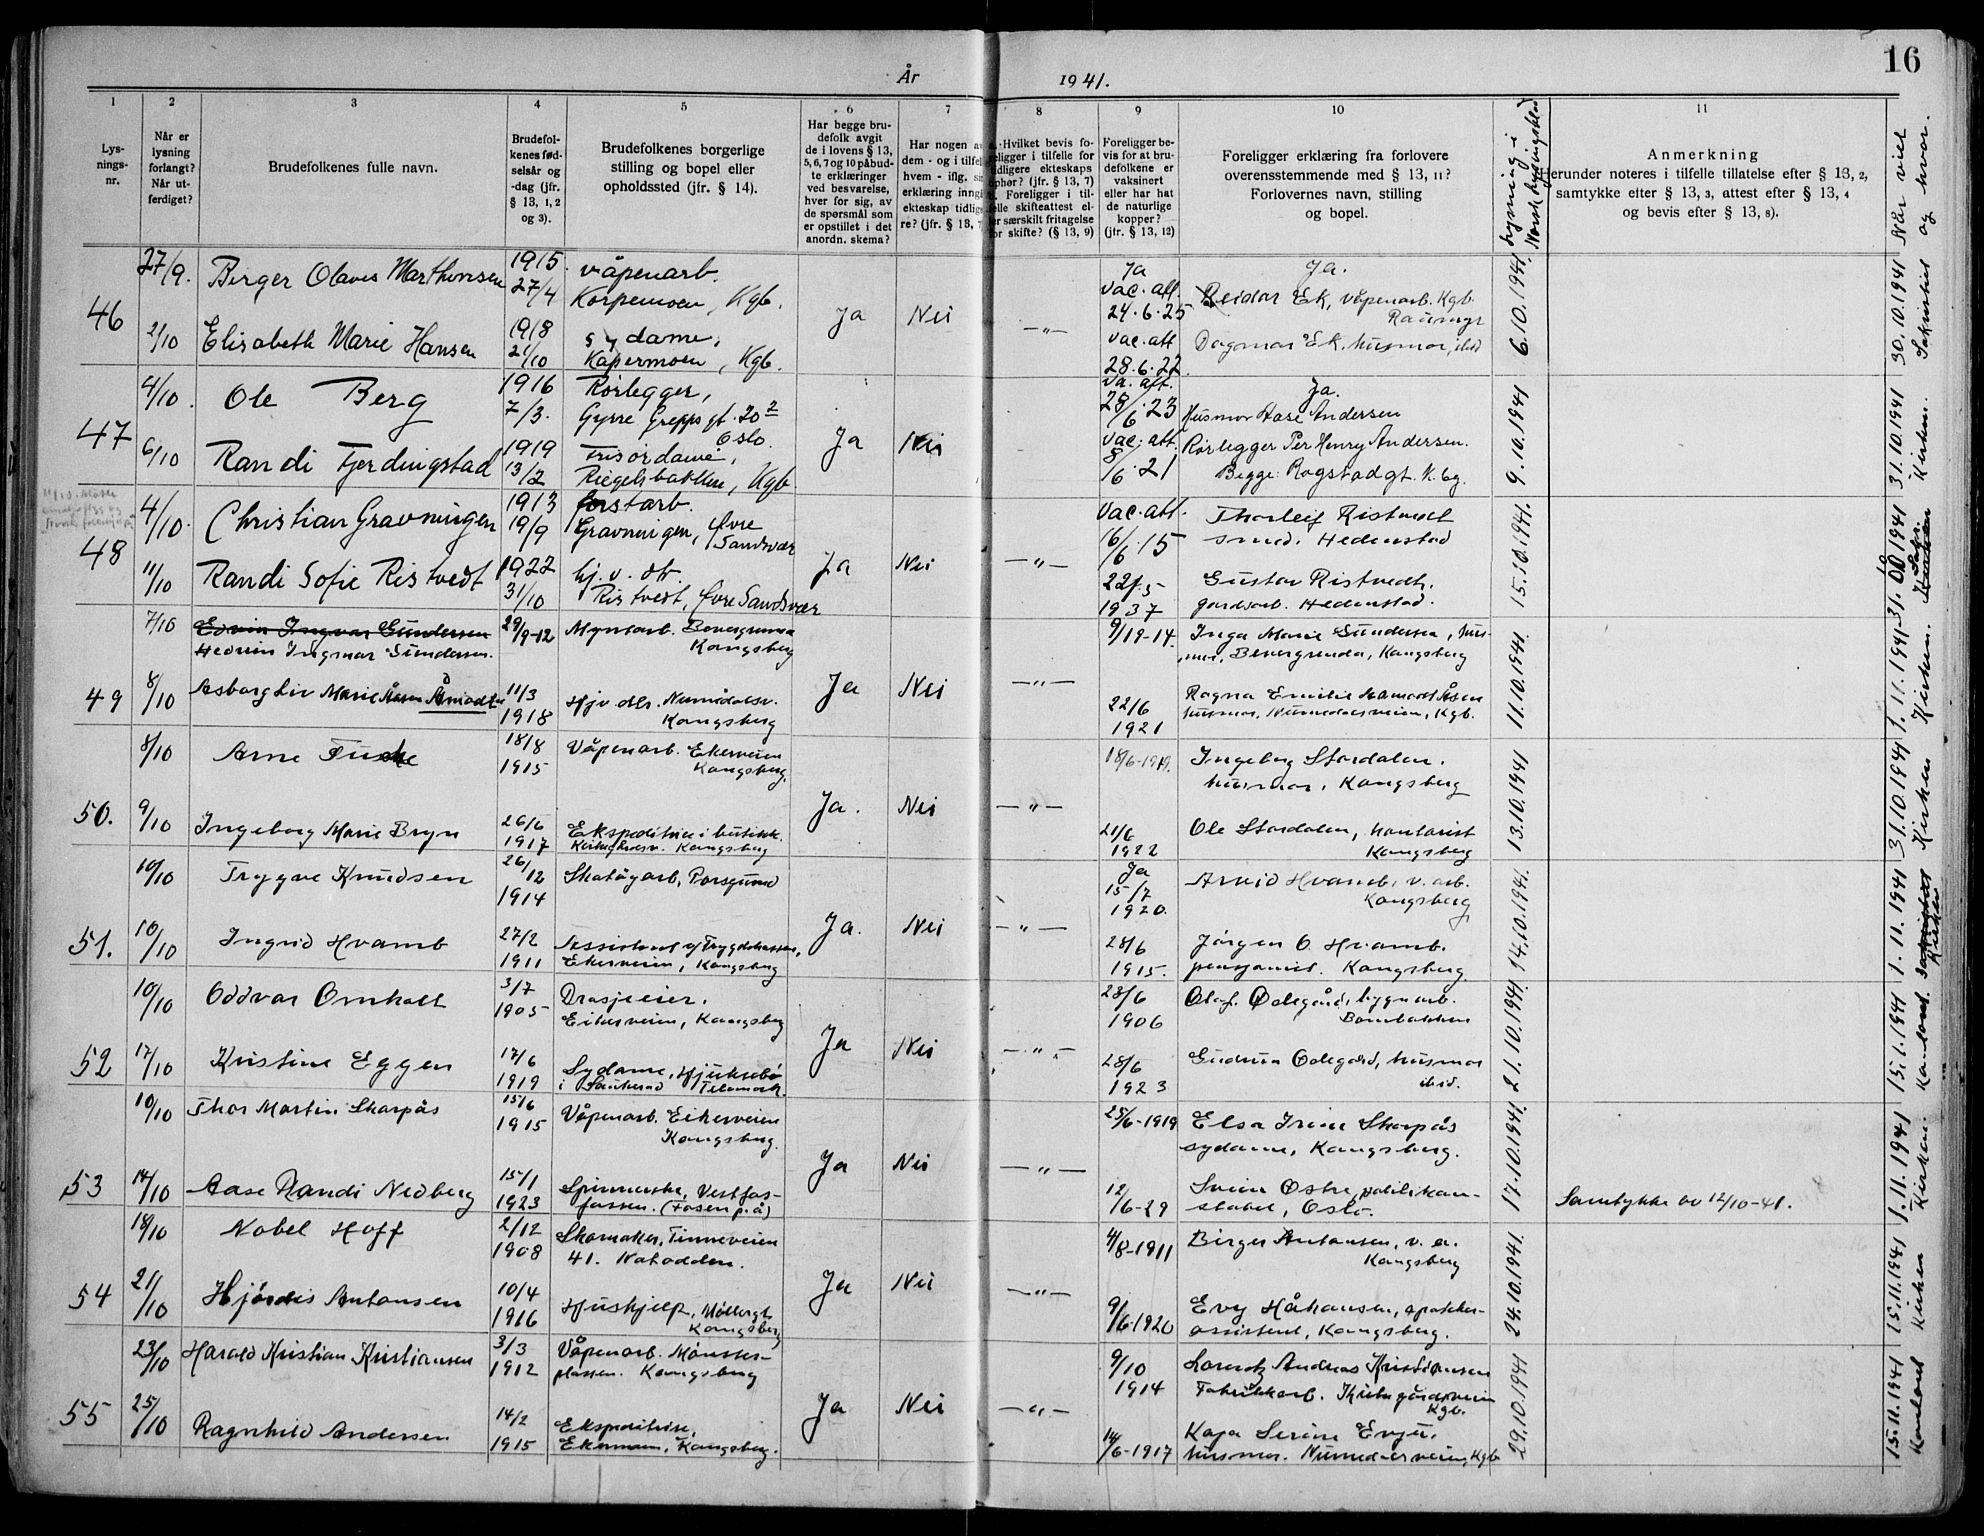 16
År 1941.
1 2 3 4 5 6 7 8 9 10 11
Lys-
nings-
nr.
Når er
lysning
forlangt?
Når ut-
ferdiget?
Brudefolkenes fulle navn.
Brudefol-
kenes fød-
selsår og
-dag (jfr.
§ 13, 1, 2
og 3).
Brudefolkenes borgerlige
stilling og bopel eller
opholdssted (jfr. § 14).
Har begge bru-
defolk avgit
de i lovens § 13,
5, 6, 7 og 10 påbud-
te erklæringer
ved besvarelse,
hver for sig, av
de spørsmål som
er opstillet i det
anordn. skema?
Har nogen a
dem - og i tilfel
hvem - iflg. s
erklæring inng
ekteskap tidlig
re? (jfr. § 13, 7
a. Hvilket bevis fo-
religger i tilfelle for
tidligere ekteskaps
ophør? (jfr. § 13, 7)
Foreligger i til-
felle skifteattest el-
ler særskilt fritagelse
for skifte? (§ 13, 9)
Foreligger be-
vis for at bru-
defolkene er
vaksinert
eller har hat
de naturlige
kopper?
(jfr. § 13, 12)
Foreligger erklæring fra forlovere
overensstemmende med § 13, 11?
Forlovernes navn, stilling
og bopel.
Lysning i
Norsk lysningsblad
Anmerkning
Herunder noteres i tilfelle tillatelse efter § 13, 2,
samtykke efter § 13, 3, attest efter § 13, 4
og bevis efter § 13, 8).
Når viet
og hvor.
46 27/9. Birger Olaves Marthinsen 1915 27/4 våpenarb. Korpemoen, Kgb. Ja Nei — " — Ja vac. att. 24.6.25 Ja. Reidar Ek, våpenarb. Kgb. 6.10.1941. 30.10.1941 Sakristiet
2/10 Elisabeth Marie Hansen 1918 21/10 sydame, Kapermoen, Kgb. vac. att 28.6.22 Dagmar Ek. husmor, ibid
47 4/10. Ole Berg 1916 7/3. Rørlegger, Gyrre Grepps gt. 20² Oslo. Ja Nei va. att. 28/6.23 Ja. Husmor Aase Andersen 9.10.1941 31.10.1941 Kirken.
6/10 Randi Fjerdingstad 1919 13/2 Frisørdame, Riegelsbakken, Kgb. vac. att 8/6.21 Rørlegger Per Henry Andersen. Begge: Rogstadgt. K.bg.
48 4/10. Christian Gravningen 1913 19/9 forstarb. Gravningen, Øvre Sandsvær Ja Nei — " — vac. att. 16/6.15 Thorleif Ristvedt smed. Hedenstad 15.10.1941. 31.10.1941
11/10 Randi Sofie Ristvedt 1922 31/10 hj.v. dtr. Ristvedt, Øvre Sandsvær 22/5 1937 Gustav Ristvedt, gardsarb. Hedenstad.
49 7/10 Edvin Ingvar Gundersen
Hedvin Ingmar Gundersen. 29/9-12 Myntarb. Bevergrenda Kongsberg Ja Nei — " — 9/19-14. Inga Marie Gundersen, hus-
mor, Bevergrenda, Kongsberg 11.10.1941. 1.11.1941 Kirken.
8/10 Asborg Liv Marie Åsen Åmodt 11/3 1918 Hjv dtr. Numedalsv. Kongsberg 22/6 1921 Ragna Emilie Aamodt Åsen
husmor, Numedalsveien, Kgb.
50. 8/10 Arne Fuske 18/8 1915 Våpenarb. Ekerveien Kongsberg. Ja. Nei — " — 18/6-1919. Ingeborg Stordalen. husmor, Kongsberg 13.10.1941 31.10.1941 Kirken
9/10 Ingeborg Marie Bryn 26/6 1917 Ekspeditrise i butikk. Kirkegårdsv. Kongsberg 21/6 1922 Ole Stordalen, kontorist Kongsberg
51. 10/10 Trygve Knudsen 26/12 1914 Skotøyarb, Porsgrund Ja. Nei — " — Ja 15/7 1920. Arvid Hvamb, v. arb. Kongsberg 14.10.1941. 1.11.1941 Sakristiet Kirken
10/10 Ingrid Hvamb 27/2 1911 Assistent v/ Trygdekassen, Ekerveien, Kongsberg 28/6 1915. Jörgen O. Hvamb. pensjonist. Kongsberg.
52 10/10 Oddvar Omholt 3/7 1905 Drosjeeier. Eikerveien, Kongsberg Ja Nei — " — 28/6 1906 Olaf. Ødegård, bygn.arb. 21.10.1941. 15.1.1941 Kontoret.
17/10 Kristine Eggen 17/6 1919 Sydame, Hjuksebø i Sauherad Telemark. 28/6 1923 Gudrun Ødegård, husmor ibid.
53 10/10 Thor Martin Skarpås 15/6 1915 Våpenarb. Eikerveien Kongsberg. Ja Nei — " — 25/6-1919 Elsa Irene Skarpås sydame, Kongsberg. 17.10.1941. 1.11.1941 Kirken.
14/10 Aase Randi Nedberg 15/1 1923 Spinnerske, Vestfos-
fossen. (Fosen p.å) 12/6-29 Svein Østre, politikon-
stabel, Oslo. Samtykke av 12/10-41.
54 18/10 Nobel Hoff 2/12 1908 Skomaker, Tinneveien 41. Notodden. Ja Nei — " — 4/8-1911 Birger Antonsen, v.a. Kongsberg 24.10.1941. 15.11.1941 Kirken
21/10 Hjørdis Antonsen 10/4 1916 Hushjelp, Møllergt. Kongsberg 9/6-1920 Evy Håkonsen, apoteker-
assistent, Kongsberg.
55 23/10 Harald Kristian Kristiansen 3/3 1912 Våpenarb. Mønster-
plassen. Kongsberg Ja Nei — " — 9/10 1914 Lorentz Andreas Kristiansen Fabrikkarb. Kirkegårdsveien Kgb. 29.10.1941 15.11.1941 Kontoret
25/10 Ragnhild Andersen 14/2 1915 Ekspeditrise, Kongsberg. 14/6-1917 Kaja Serine Evju. husmor. Numedalsveien, Kgb